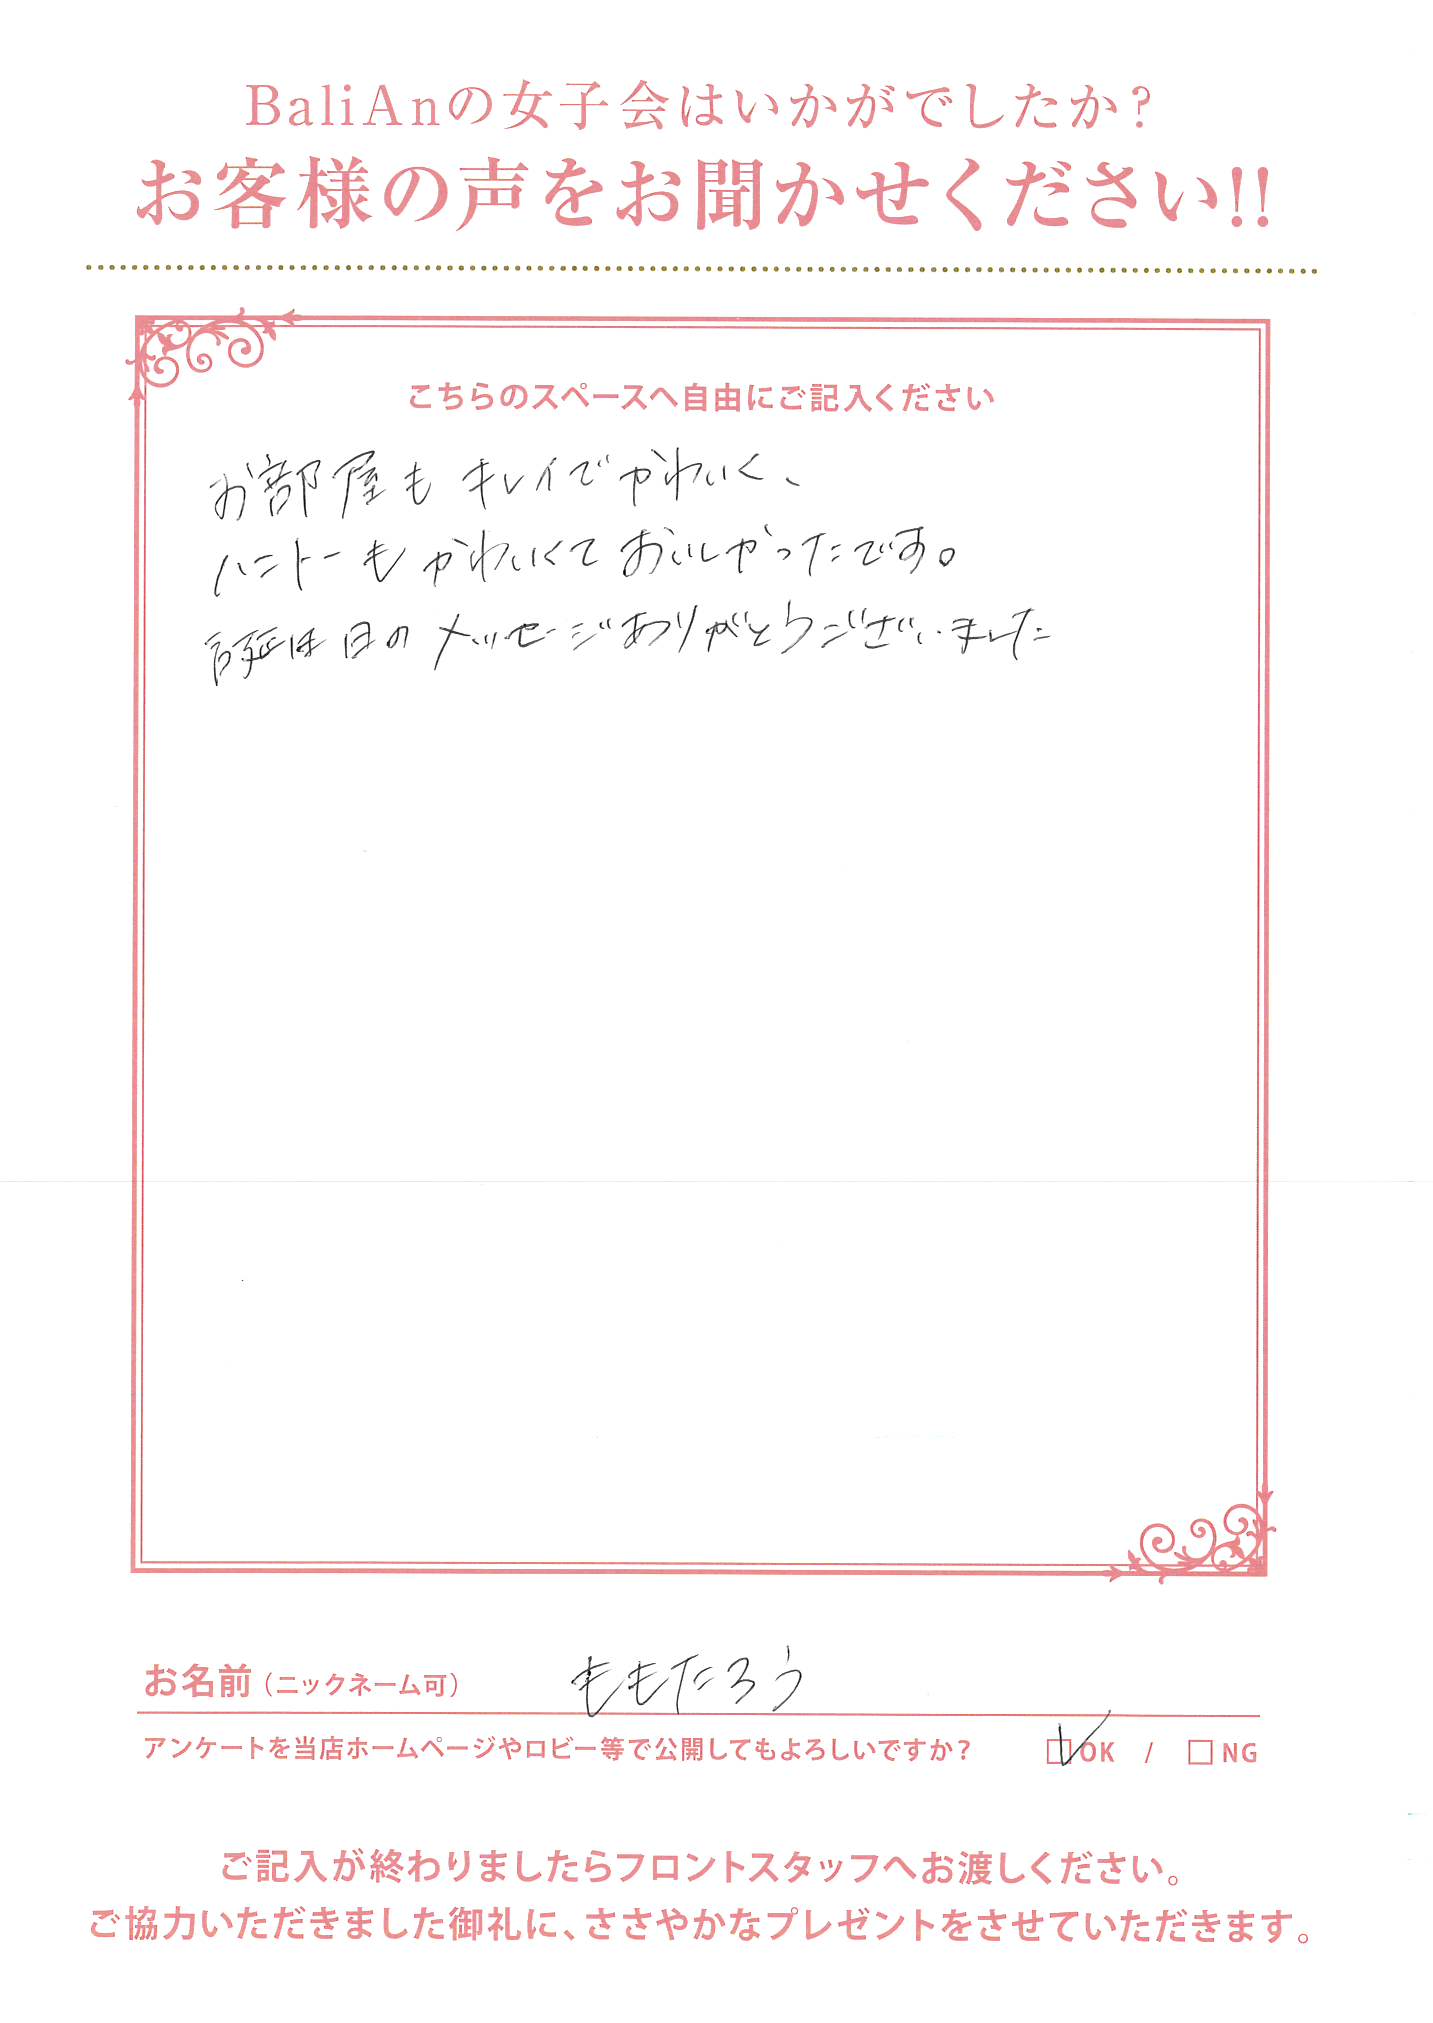 BaliAnの女子会はいかがでしたか?
お客様の声をお聞かせください!!
こちらのスペースへ自由にご記入ください
お部屋もキレイでかわいく、
ハニトーもかわいくておいしかったです。
誕生日のメッセージありがとうございました
お名前(ニックネーム可) ももたろう
アンケートを当店ホームページやロビー等で公開してもよろしいですか? ☑OK / □NG
ご記入が終わりましたらフロントスタッフへお渡しください。
ご協力いただきました御礼に、ささやかなプレゼントをさせていただきます。